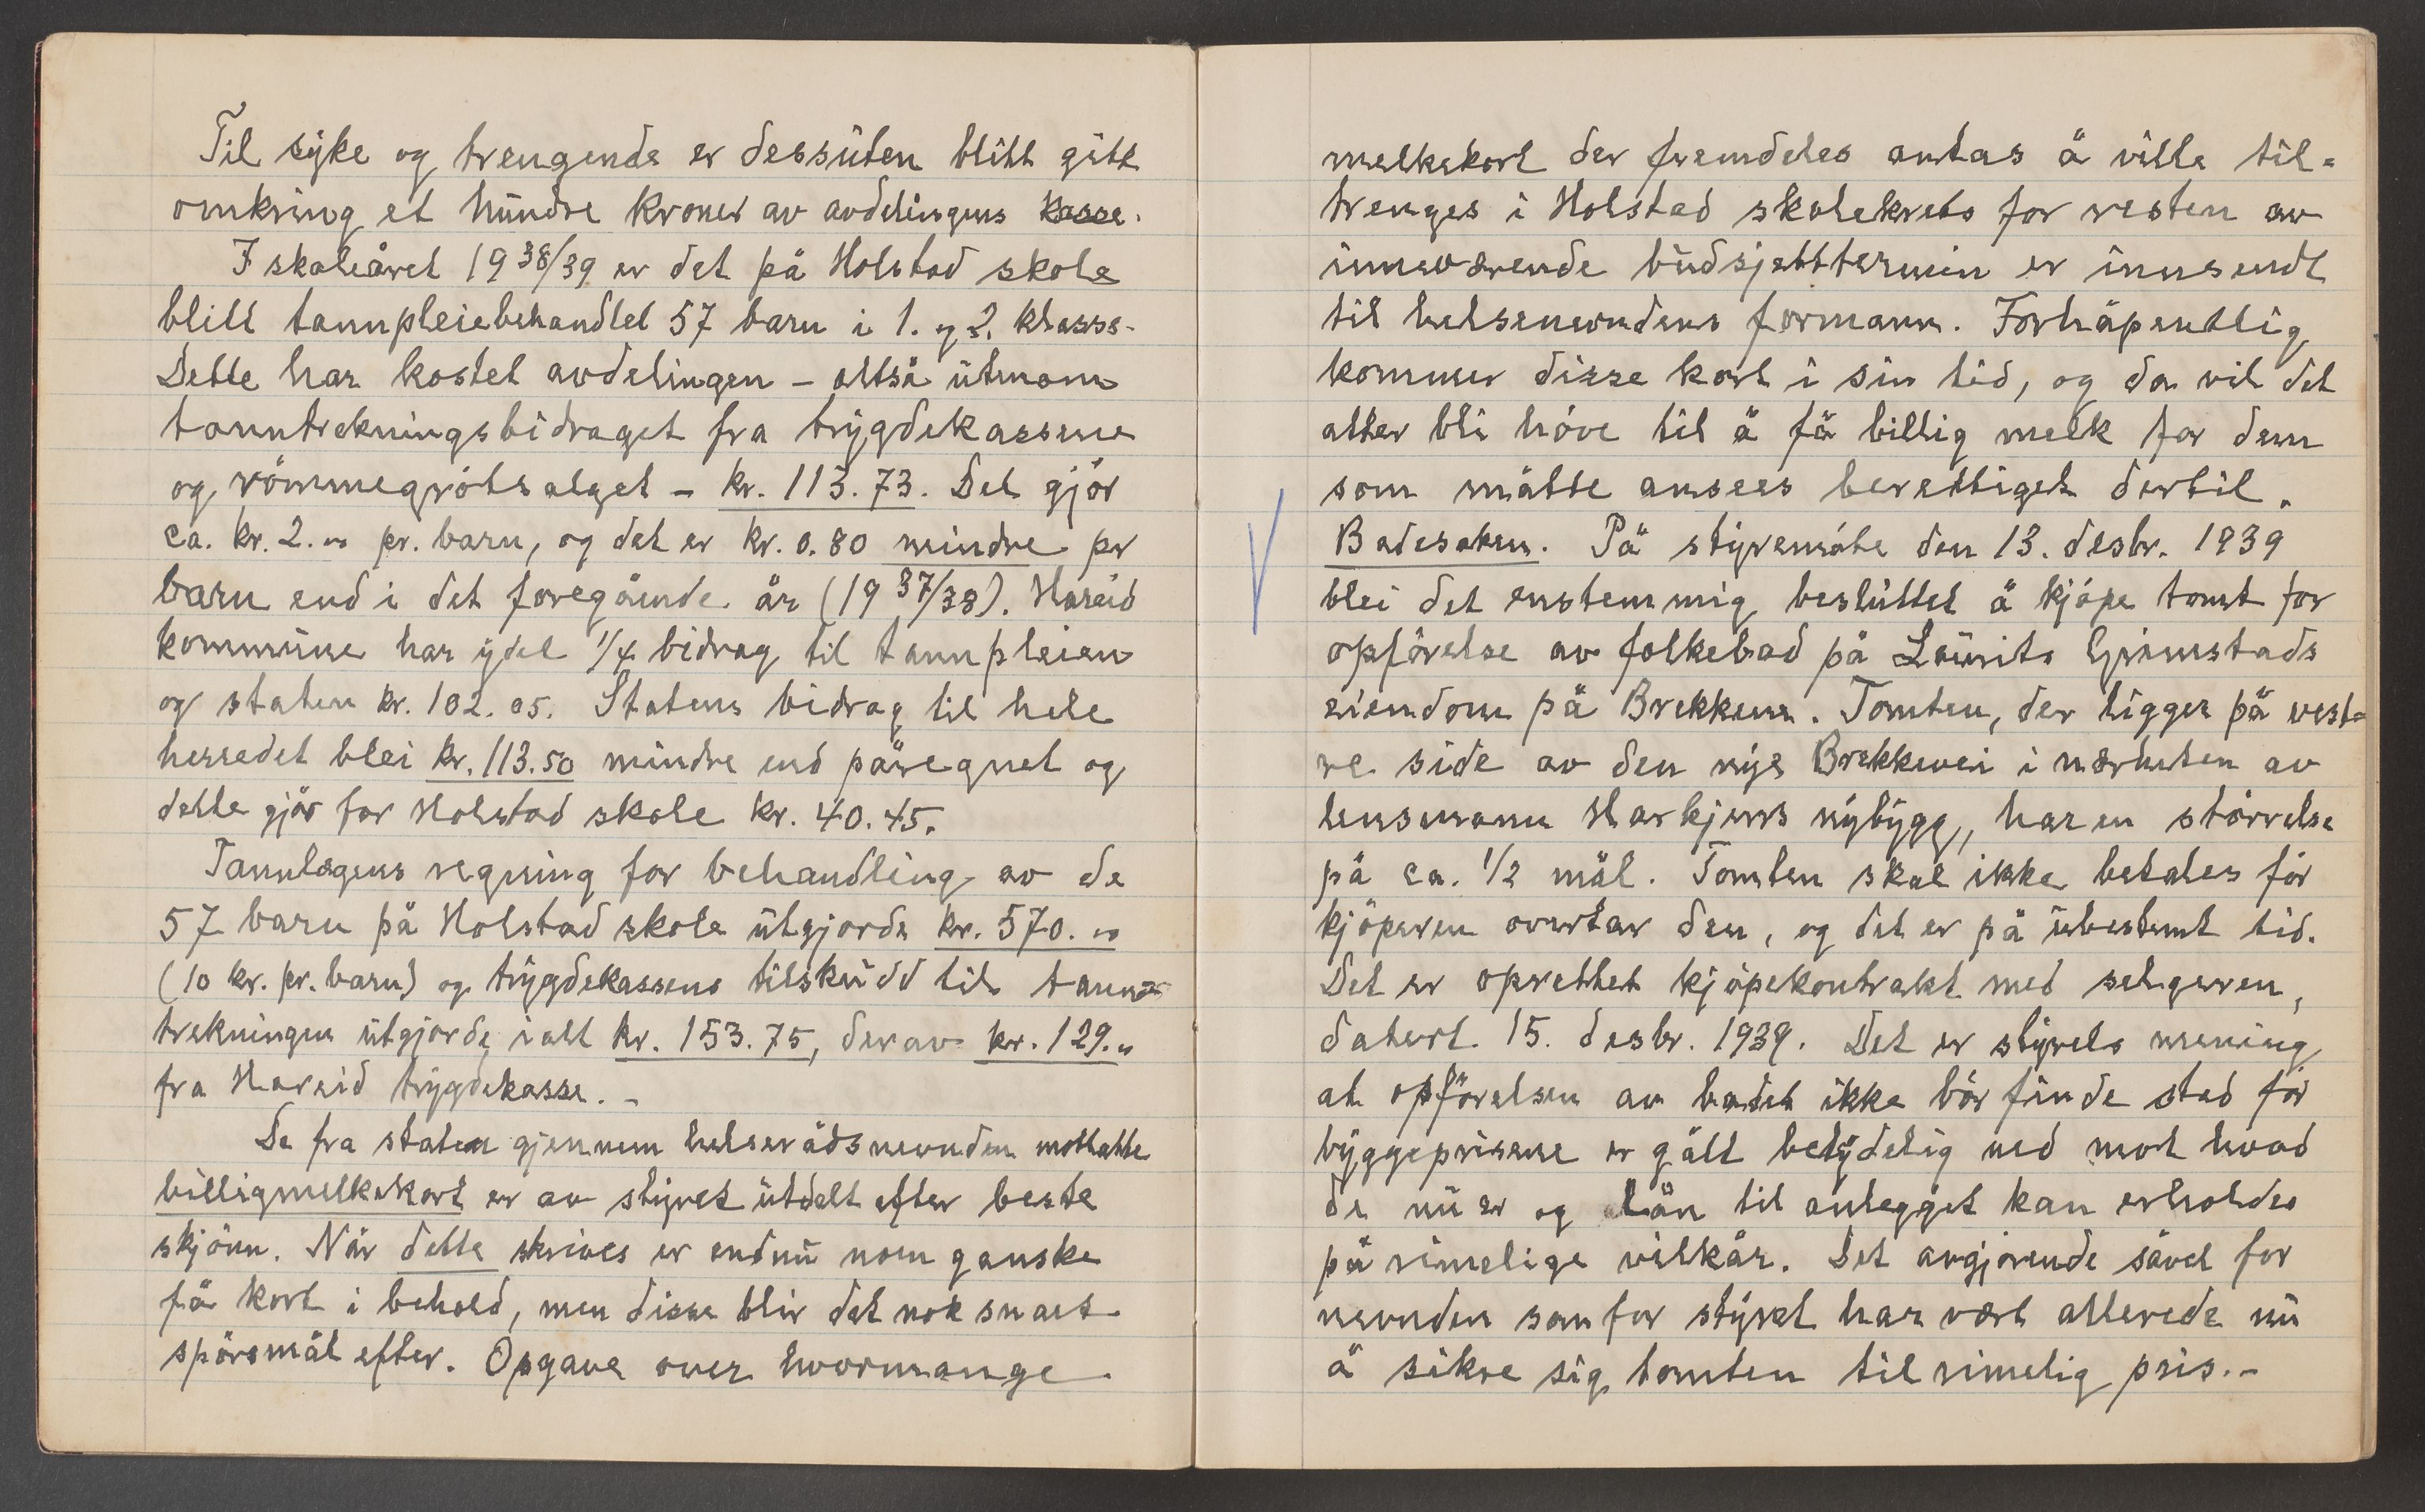 Til syke og trengende er dessuten blitt gitt
omkring et hundre kroner av avdelingens kasse.
I skoleåret 1938/39 er det på Holstad skole
blitt tannpleiebehandlet 57 barn i 1. og 2. klasse.
Dette har kostet avdelingen - altså utenom
tanntrekningsbidraget fra trygdekassene
og römmegrötsalget - kr. 113.73. Det gjör
ca. kr. 2.00 pr. barn, og det er kr. 0.80 mindre pr
barn end i det foregående år (1937/38). Hareid
kommune har ydet 1/4 bidrag til tannpleien
og staten kr. 102.05. Statens bidrag til hele
herredet blei kr. 113.50 mindre end påregnet og
dette gjör for Holstad skole kr. 40.45.
Tannlægens regning for behandling av de
57 barn på Holstad skole utgjorde kr. 570.00
(10 kr. pr. barn) og trygdekassens tilskudd til tann=
trekningen utgjorde ialt kr. 153.75, derav kr. 129.00
fra Hareid trygdekasse. -
De fra staten gjennem helserådsnevnden mottatte
billigmelkskort er av styret utdelt efter beste
skjönn. Når dette skrives er endnu noen ganske
få kort i behold, men disse blir det nok snart
spörsmål efter. Opgave over hvormange
melkekort der fremdeles antas å ville til=
trenges i Holstad skolekrets for resten av
inneværende budsjettermin er innsendt
til helsenevndens formann. Forhåpentlig
kommer disse kort i sin tid, og da vil det
atter bli höve til å få billig melk for dem
som måtte ansees berettiget dertil.
Badesaken. På styremöte den 13. desbr. 1939
blei det enstemmig besluttet å kjöpe tomt for
opförelse av folkebad på Laurits Grimstads
eiendom på Brekkene. Tomten, der ligger på vest=
re side av den nye Brekkevei i nærheten av
lensmann Markjens nybygg, har en störrelse
på ca. 1/2 mål. Tomten skal ikke betales för
kjöperen overtar den, og det er på ubestemt tid.
Det er oprettet kjöpekontrakt med selgeren,
datert 15. desbr. 1939. Det er styrets mening
at opförelsen av badet ikke bör finde sted för
byggeprisene er gått betydelig ned mot hvad
de nu er og lån til anlegget kan erholdes
på rimelige vilkår. Det avgjörende såvel for
nevnden som for styret har vært allerede nu
å sikre sig tomten til rimelig pris. -